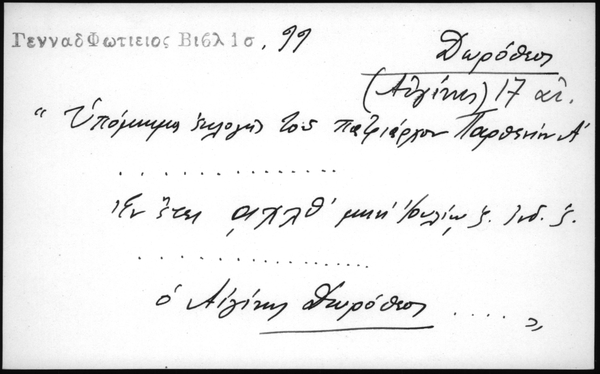 Γενναδ Φωτιειος Βιβλ 1σ, 99
Δωρόθεος
(Αἰγίνης) 17 αἰ.
“ Ὑπόμνημα ἐκλογῆς τοῦ πατριάρχου Παρθενίου Α΄
. . . . . . . . . . . . . . .
Ἐν ἔτει ͵αχλθ΄ μηνὶ Ἰουλίῳ ἰνδ. ζ.
. . . . . . . . . . . . . . . .
ὁ Αἰγίνης Δωρόθεος . . . . . „